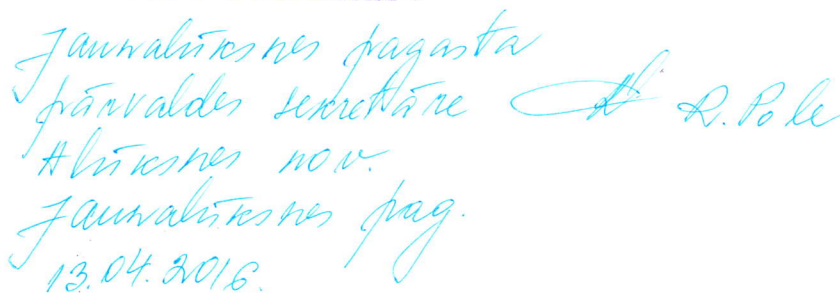 Jaunalūksnes pagasta
pārvaldes sekretāre R. Pole
Alūksnes nov.
Jaunalūksnes pag.
13.04.2016.